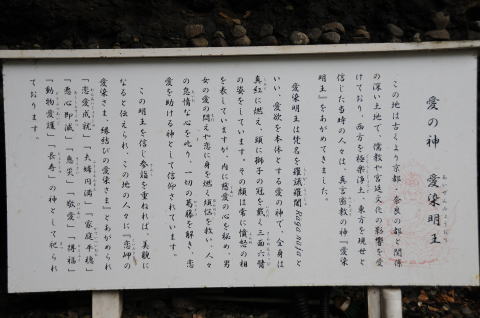 愛の神　愛染明王
あいぜんみょうおう
この地は古くより京都、奈良の都と関係
の深い土地で、儒教や宮廷文化の影響を受
けており、西方を極楽浄土、東方を現世と
信じた当時の人々は、真言密教の神『愛染
明王』をあがめてきました。
愛染明王は梵名を羅誐羅闍Ragarajaと
いい、愛欲を本体とする愛の神で、全身は
真紅に燃え、頭に獅子の冠を戴く三面六臂
の姿をしています。その顔は常に憤怒の相
を表していますが、内に慈愛の心を秘め、男
女の愛の悶えや恋に身を燃く煩悩を救い、人々
の怠惰な心を叱り、一切の葛藤を解き、恋
愛を助ける神として信仰されています。
この明王を信じ参詣を重ねれば、美貌に
なると伝えられ、この地の人々に『恋岬の
愛染さま、縁結びの愛染さま』とあがめられ
「恋愛成就」「夫婦円満」「家庭平穏」
「悪心即滅」「息災」「敬愛」「得福」
「動物愛護」「長寿」の神として祀られ
ております。